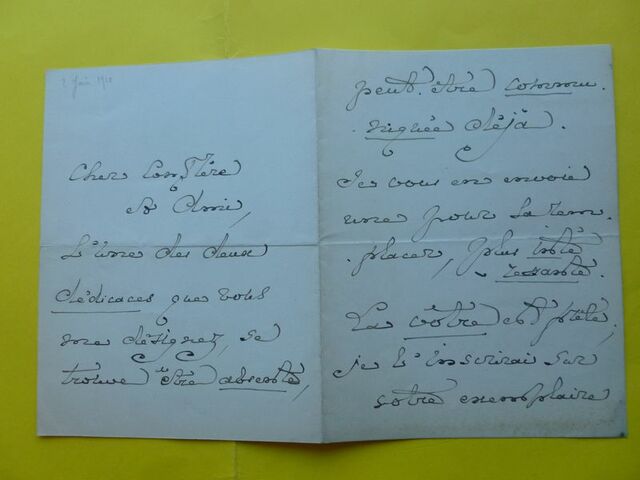 Juin 1920
Cher Confrère
et Ami,
L'une des deux
dédicaces que vous
me désignez, se
trouve être absente,
peut-être commu-
niquée déjà.
Je vous en envoie
une pour la rem-
placer, plus inté-
ressante.
La vôtre est prête,
je l'inscrirai sur
votre exemplaire